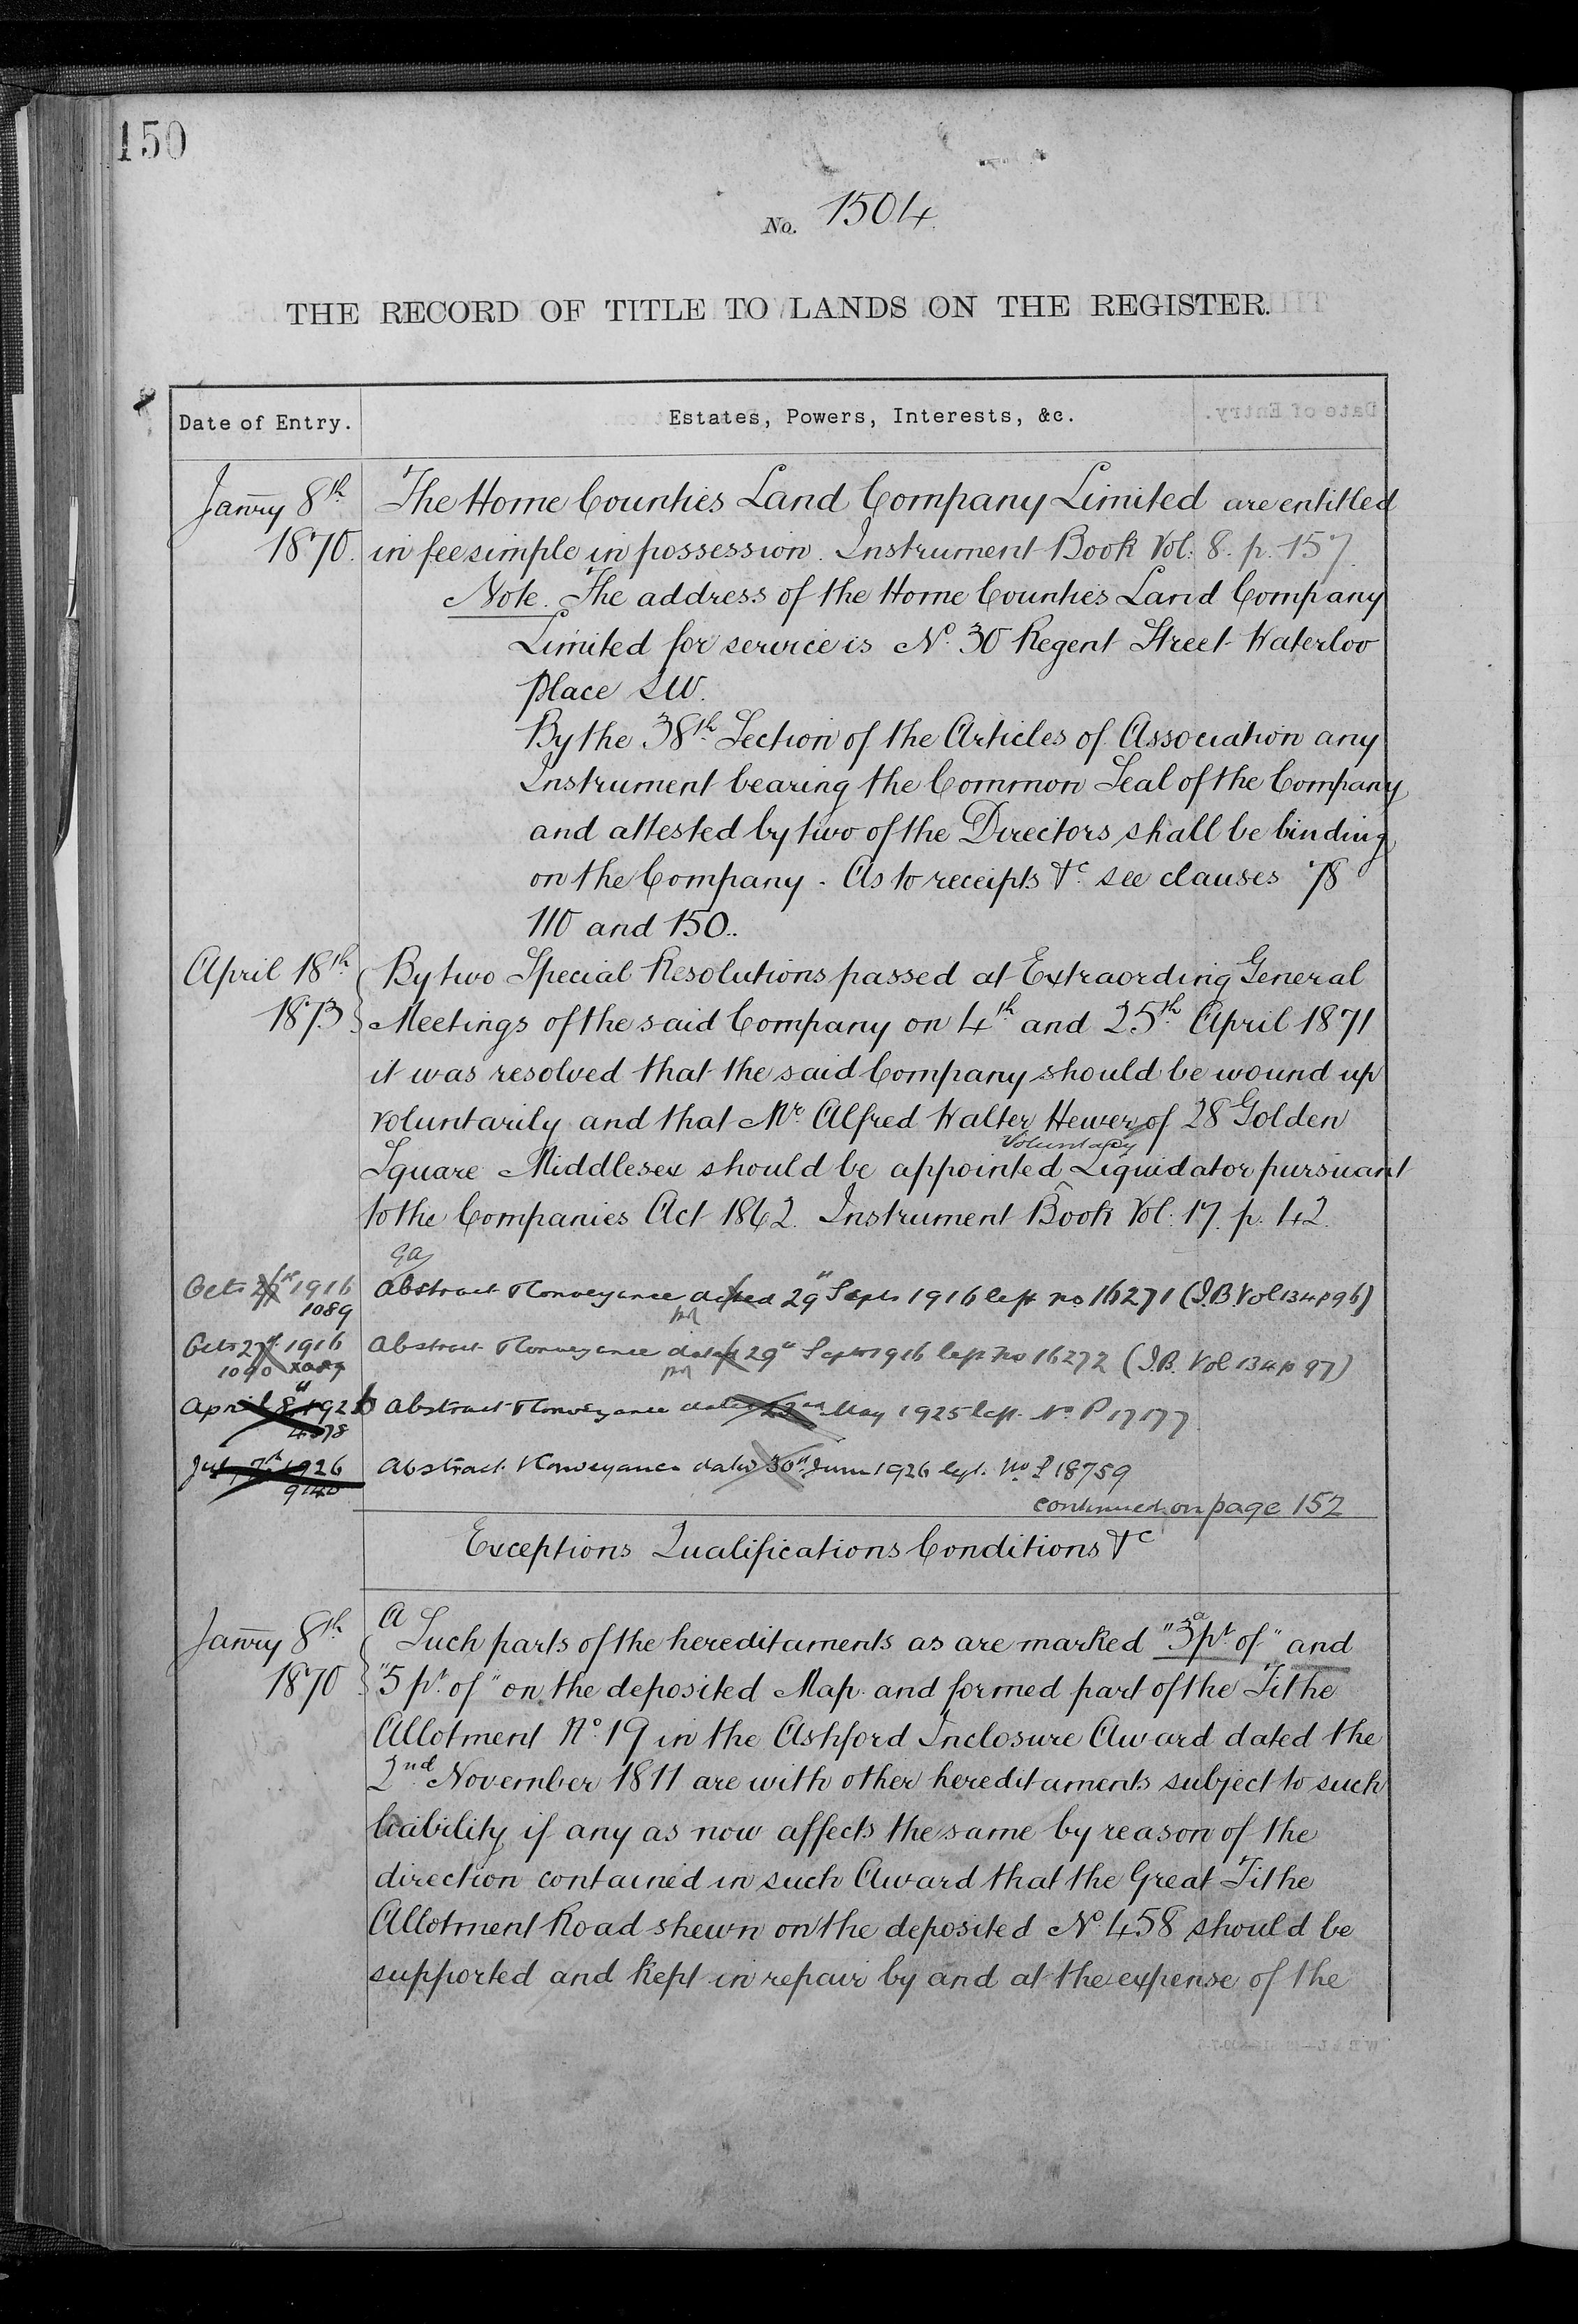 150
No. 1504
THE RECORD OF TITLE TO LANDS ON THE REGISTER.
Date of Entry.
Estates, Powers, Interests, &c.
Janry 8th 1870.
The Home Counties Land Company Limited are entitled
in fee simple in possession. Instrument Book Vol: 8. p. 157.
Note. The address of the Home Counties Land Company
Limited for service is No. 30 Regent Street Waterloo
place S W.
By the 38th Section of the Articles of Association any
Instrument bearing the Common Seal of the Company
and attested by two of the Directors shall be binding
on the Company - As to receipts &c. see clauses 78
110 and 150..
April 18th 1873
By two Special Resolutions passed at Extraording General
Meetings of the said Company on 4th and 25th April 1871
it was resolved that the said Company should be wound up
voluntarily and that Mr Alfred Walter Hewer of 28 Golden
Voluntary
Square Middlesex should be appointed Liquidator pursuant
to the Companies Act 1862. Instrument Book Vol: 17. p. 42.
Octr 1916
1089
Abstract & Conveyance dated 29th Septr 1916 left no 16271 (I.B. Vol 134 p 96)
Octr 27th 1916
1090
Abstract & Conveyance dated 29th Septr 1916 left No 16272 (I.B. Vol 134 p 97)
April 8th 192
4378
Abstract & Conveyance dated May 1925 left No P 17177
July 7th 1926
9140
Abstract & Conveyance dated 30th June 1926 left No P 18759
continued on page 152
Exceptions Qualifications Conditions &c
Janry 8th 1870
a
Such parts of the hereditaments as are marked "3a pt. of" and
"5 pt. of" on the deposited Map and formed part of the Tithe
Allotment No. 19 in the Ashford Inclosure Award dated the
2nd November 1811 are with other hereditaments subject to such
liability if any as now affects the same by reason of the
direction contained in such Award that the Great Tithe
Allotment Road shewn on the deposited No. 458 should be
supported and kept in repair by and at the expense of the